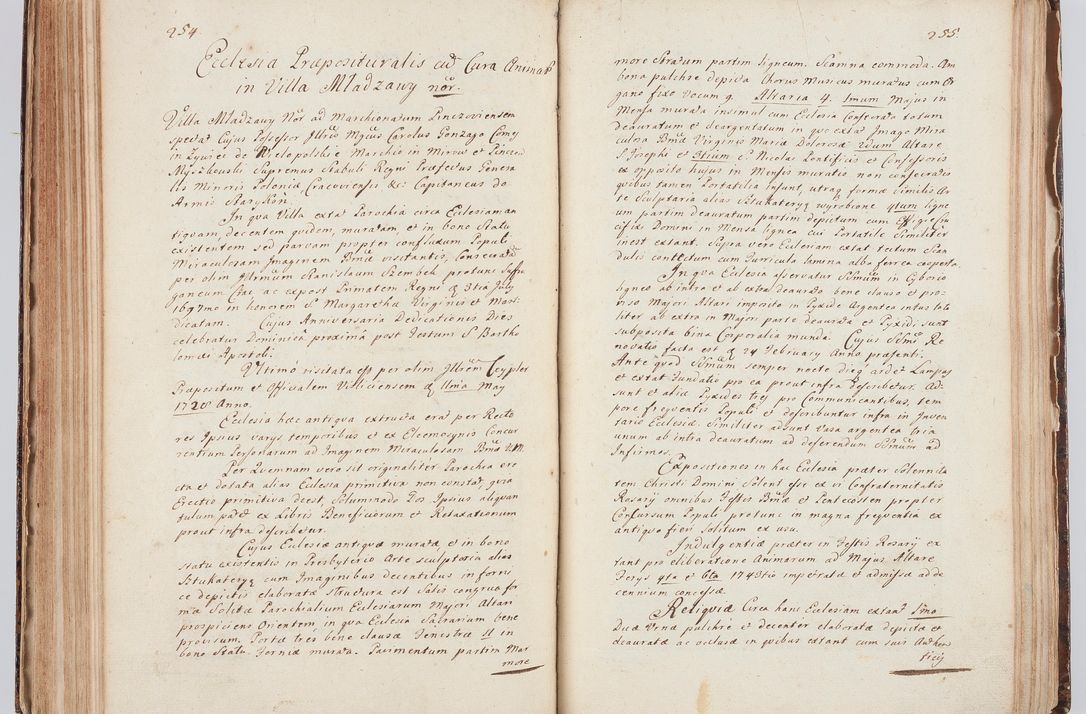 254.
Ecclesia Præposituralis cū Cura Animar̄
in Villa Mladzawy nōr.
Villa Mladzawy Nōr ad Marchionatum Pinczoviensem
specta᷑ Cujus Possessor Illrūs Mgcūs Carolus Gonzago Comes
de Wielopolskie Marchio in Mirow et Pinczow
Myszkowski Supremus Stabuli Regni Præfectus Genera
lis Minoris Poloniæ Cracoviensis &c: Capitaneus de
Armis Starykon.
In qva Villa exta᷑ Parochia circa Ecclesiam an
tiqvam, decentem qvidem, muratam, et in bono Statu
existentem sed parvam propter confluxum Populi
Miraculosam Imaginem Bmæ visitantis, Consecratā
per olim Illrmūm Stanislaum Szembek protunc Suffra
ganeum Crac: ac expost Primatem Regni ꝗ 3tia July
1697mo in honorem S. Margarethæ Virginis et Mart:
dicatam. Cujus Anniversaria Dedicationis Dies
celebratur Dominicâ proximâ post Festum S. Bartho
lomæi Apostoli.
Ultimô visitata est per olim Illrēm Ceypler
Præpositum et Officialem Visliciensem ꝗ 11ma May
1728 Anno.
Ecclesia hæc antiqva extructa erat per Recto
res Ipsius varys temporibus et ex Eleemosynis Concur
rentium Personarum ad Imaginem Miraculosam Bmæ V.M.
Per Quemnam vero sit originaliter Parochia ere
cta et dotata alias Ecclesia primitiva non constat, qvia
Erectio primitiva deest, Solummodo Dos Ipsius aliqvan
tulum ex Libris Beneficiorum et Relaxationum
prout infra describetur.
Cujus Ecclesiæ antiqvæ muratæ et in bono
statu existentis in Presbyterio Arte sculptoria alias
Sztukateryą cum Imaginibus decentibus in forni
ce depictis elaborata structura est Satis congrua for
mæ Solitæ Parochialium Ecclesiarum Majori Altari
prospiciens Orientem, in qva Ecclesia Sacrarium bene
provisum, Portæ tres bene clausæ Fenestræ 11 in
bono Statu. Fornix murata. Pavimentum partim Mar
more
255.
more Stratum partim ligneum. Scamna commoda. Am
bona pulchre depicta Chorus Musicus muratus cum Or
gano fixo Vocum 9. Altaria 4. Imum Majus in
Mensa murata insimul cum Ecclesia Consecrata totum
deauratum et deargentatum in qvo exta᷑ Imago Mira
culosa Bmæ Virginis Mariæ Dolorosæ 2dum Altare
S. Josephi et 3tium S. Nicolai Pontificis et Confessoris
ex opposito hujus in Mensis muratis non consecratis
qvibus tamen Portatilia insunt, utraq forma similis Ar
te Sculptaria alias Sztukateryą wyrobione 4tum ligne
um partim deauratum partim depictum cum Effigie Cru
cifixi Domini in Mensa lignea cui Portatile Similiter
inest extant. Supra vero Ecclesiam extat tectum Scan
dulis contectum cum Turricula lamina alba ferrea cooperta.
In qva Ecclesia asservatur SSmūm in Cyborio
ligneo ab intro et ab extra deaurato bene clauso et pro
viso Majori Altari imposito in Pyxide Argentea intus tota
liter ab extra in Majori parte deaurata et Pyxidi sunt
subposita bina Corporalia munda. Cujus SSmi Re
novatio facta est ꝗ 24 February Anno præsenti.
Ante qvod SSmum semper nocte dieq̄ ardet Lampas
et extat Fundatio pro ea prout infra describetur. Ad
sunt et alia Pyxides tres pro Communicantibus, tem
pore freqventis Populi et describuntur infra in Inven
tario Ecclesiæ. Similiter adsunt vasa argentea tria
unum ab intra deauratum ad deferendum SSmum ad
Infirmos.
Expositiones in hac Ecclesia præter Solennita
tem Christi Domini Solent esse ex vi Confraternitatis
Rosarij omnibus Festis Bmæ et Pentecosten propter
Concursum Populi protunc in magna freqventia ex
antiqvo fieri Solitum ex usu.
Indulgentiæ præter in Festis Rosarij ex
tant pro eliberatione Animarum ad Majus Altare
Ferys 4ta et 6ta 1743tio impetratæ et admissæ ad de
cennium concessæ.
Reliqviæ Circa hanc Ecclesiam extant Imo
Duæ Urnæ pulchrè et decenter elaboratæ depictæ et
deauratæ ac oclusæ in qvibus extant cum suis Authen
ticis